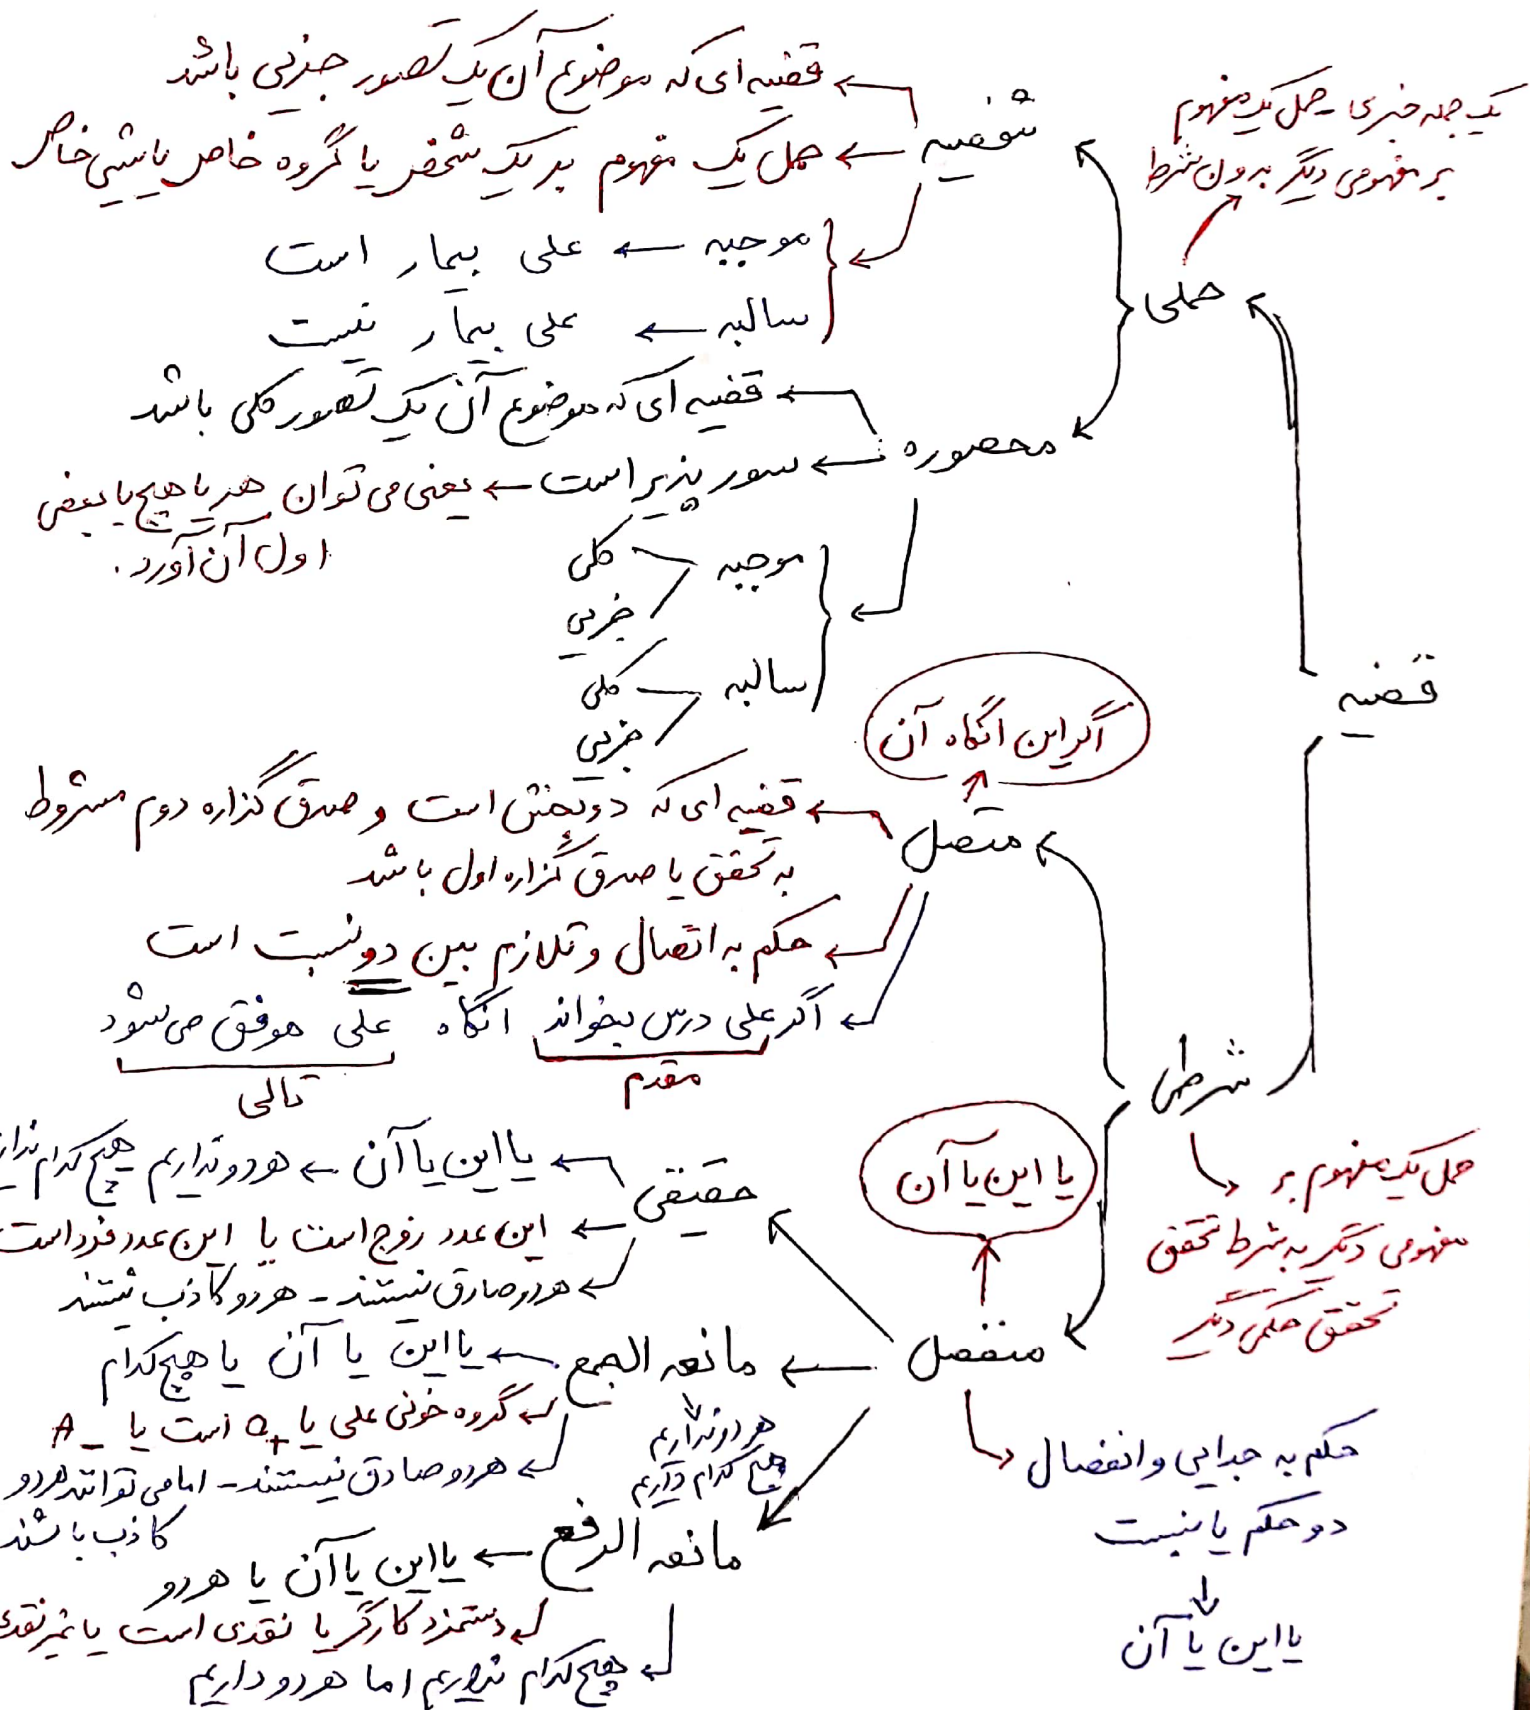 قضیه
حملی
یک جمله خبری - حمل یک مفهوم
بر مفهومی دیگر بدون شرط
شخصیه
قضیه ای که موضوع آن یک تصور جزئی باشد
حمل یک مفهوم بر یک شخص یا گروه خاص یا شیی خاص
موجبه ← علی بیمار است
سالبه ← علی بیمار نیست
محصوره
قضیه ای که موضوع آن یک تصور کلی باشد
سور پذیر است ← یعنی می توان هر یا هیچ یا بعضی
اول آن آورد.
موجبه
کلی
جزیی
سالبه
کلی
جزیی
شرطی
حمل یک مفهوم بر
مفهومی دیگر به شرط تحقق
تحقق حکمی دیگر
متصل
اگر این انگاه آن
قضیه ای که دو بخش است و صدق گزاره دوم مشروط
به تحقق یا صدق گزاره اول باشد
حکم به اتصال و تلازم بین دو نسبت است
اگر علی درس بخواند انگاه علی موفق می شود
مقدم
تالی
منفصل
یا این یا آن
حکم به جدایی و انفصال
دو حکم یا نسبت
یا این یا آن
حقیقی
یا این یا آن ← هر دو نداریم هیچ کدام
این عدد زوج است یا این عدد فرد است
هر دو صادق نیستند - هر دو کاذب نیستند
مانعه الجمع
یا این یا آن یا هیچ کدام
هر دو نداریم
هیچ کدام داریم
گروه خونی علی یا O+ است یا A-
هر دو صادق نیستند - اما می توانند هر دو
کاذب باشند
مانعه الرفع ← یا این یا آن یا هر دو
دستمزد کارگر یا نقدی است یا غیر نقدی
هیچ کدام نداریم اما هر دو داریم